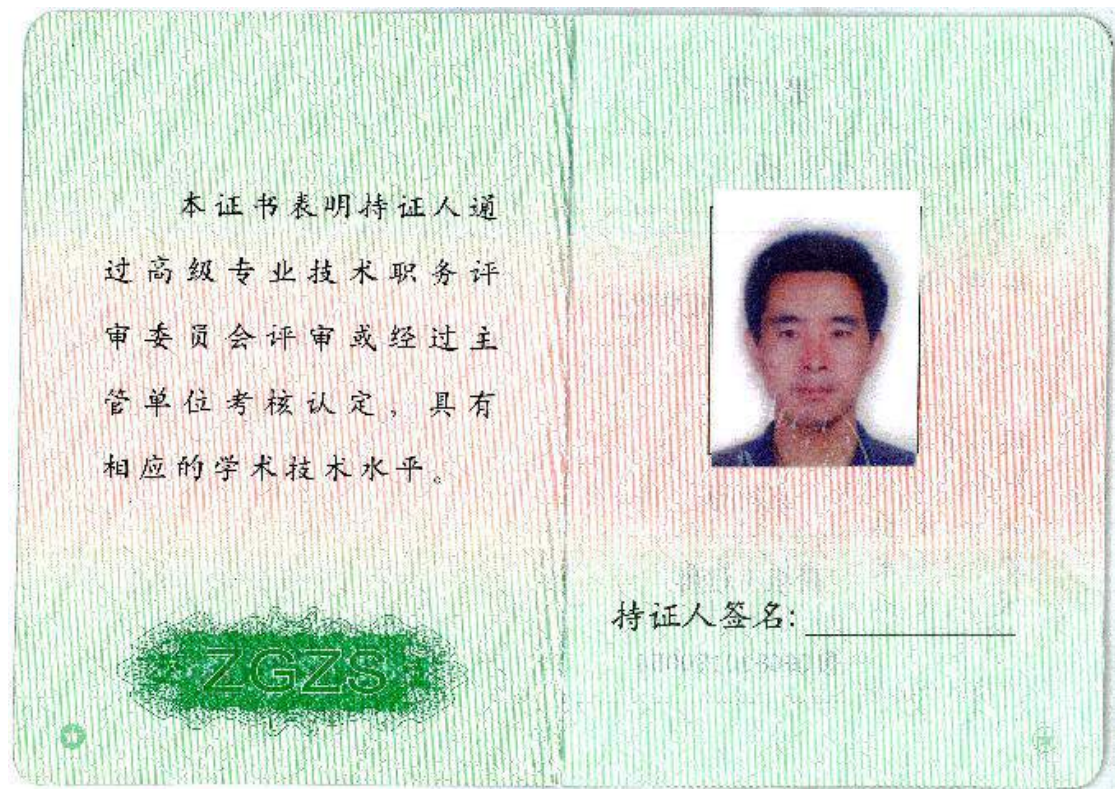 本证书表明持证人通
过高级专业技术职务评
审委员会评审或经过主
管单位考核认定，具有
相应的学术技术水平。
ZGZS
持证人签名: